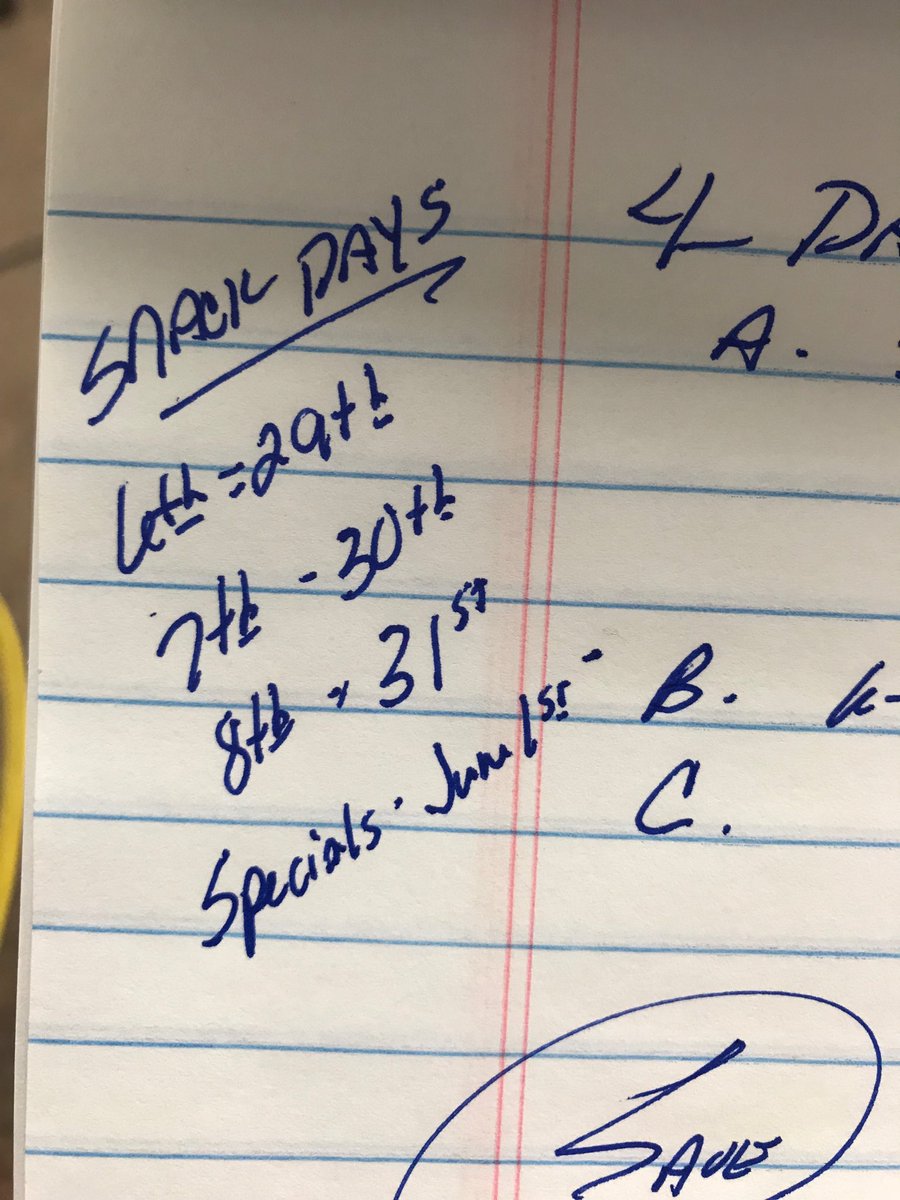 SNACK DAYS
6th = 29th
7th - 30th
8th - 31st
Specials - June 1st -
4 DA
A.
B. K-
C.
SAVE